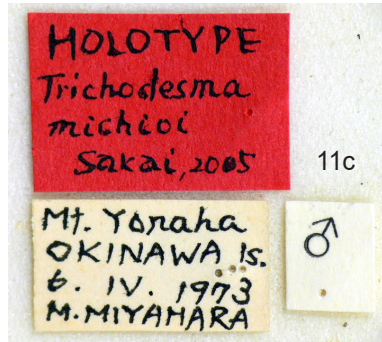 HOLOTYPE
Trichodesma
michioi
Sakai, 2005
11c
Mt. Yonaha
OKINAWA Is.
6. IV. 1973
M. MIYAHARA
♂